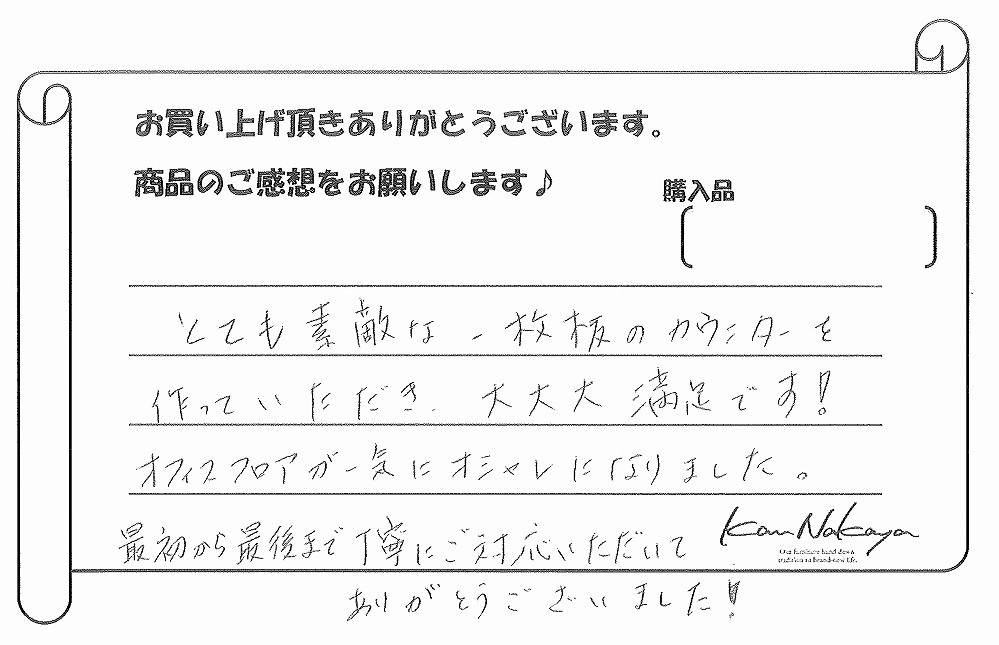 お買い上げ頂きありがとうございます。
商品のご感想をお願いします♪
購入品
とても素敵な一枚板のカウンターを
作っていただき、大大大満足です!
オフィスフロアが一気にオシャレになりました。
最初から最後まで丁寧にご対応いただいて
ありがとうございました!
Kan Nakaya
Our furniture hand down
tradition to brand-new life.